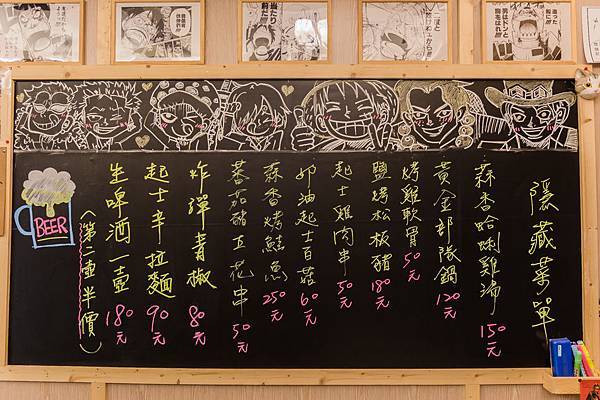 隱藏菜單
蒜香蛤蜊雞湯 150元
黃金部隊鍋 120元
烤雞軟骨 50元
鹽烤松板豬 180元
起士雞肉串 50元
奶油起士百菇 60元
蒜香烤鮭魚 250元
蕃茄豬五花串 50元
炸彈青椒 80元
起士辛拉麵 90元
生啤酒一壺 180元
(第二壺半價)
BEER